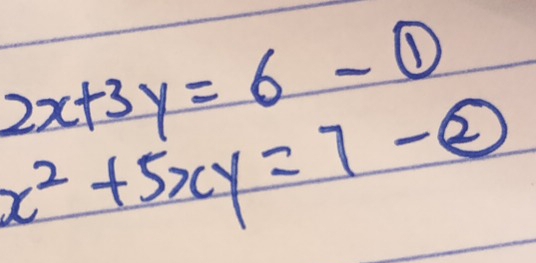 2x+3y = 6 - ①
x² + 5xy = 7 - ②